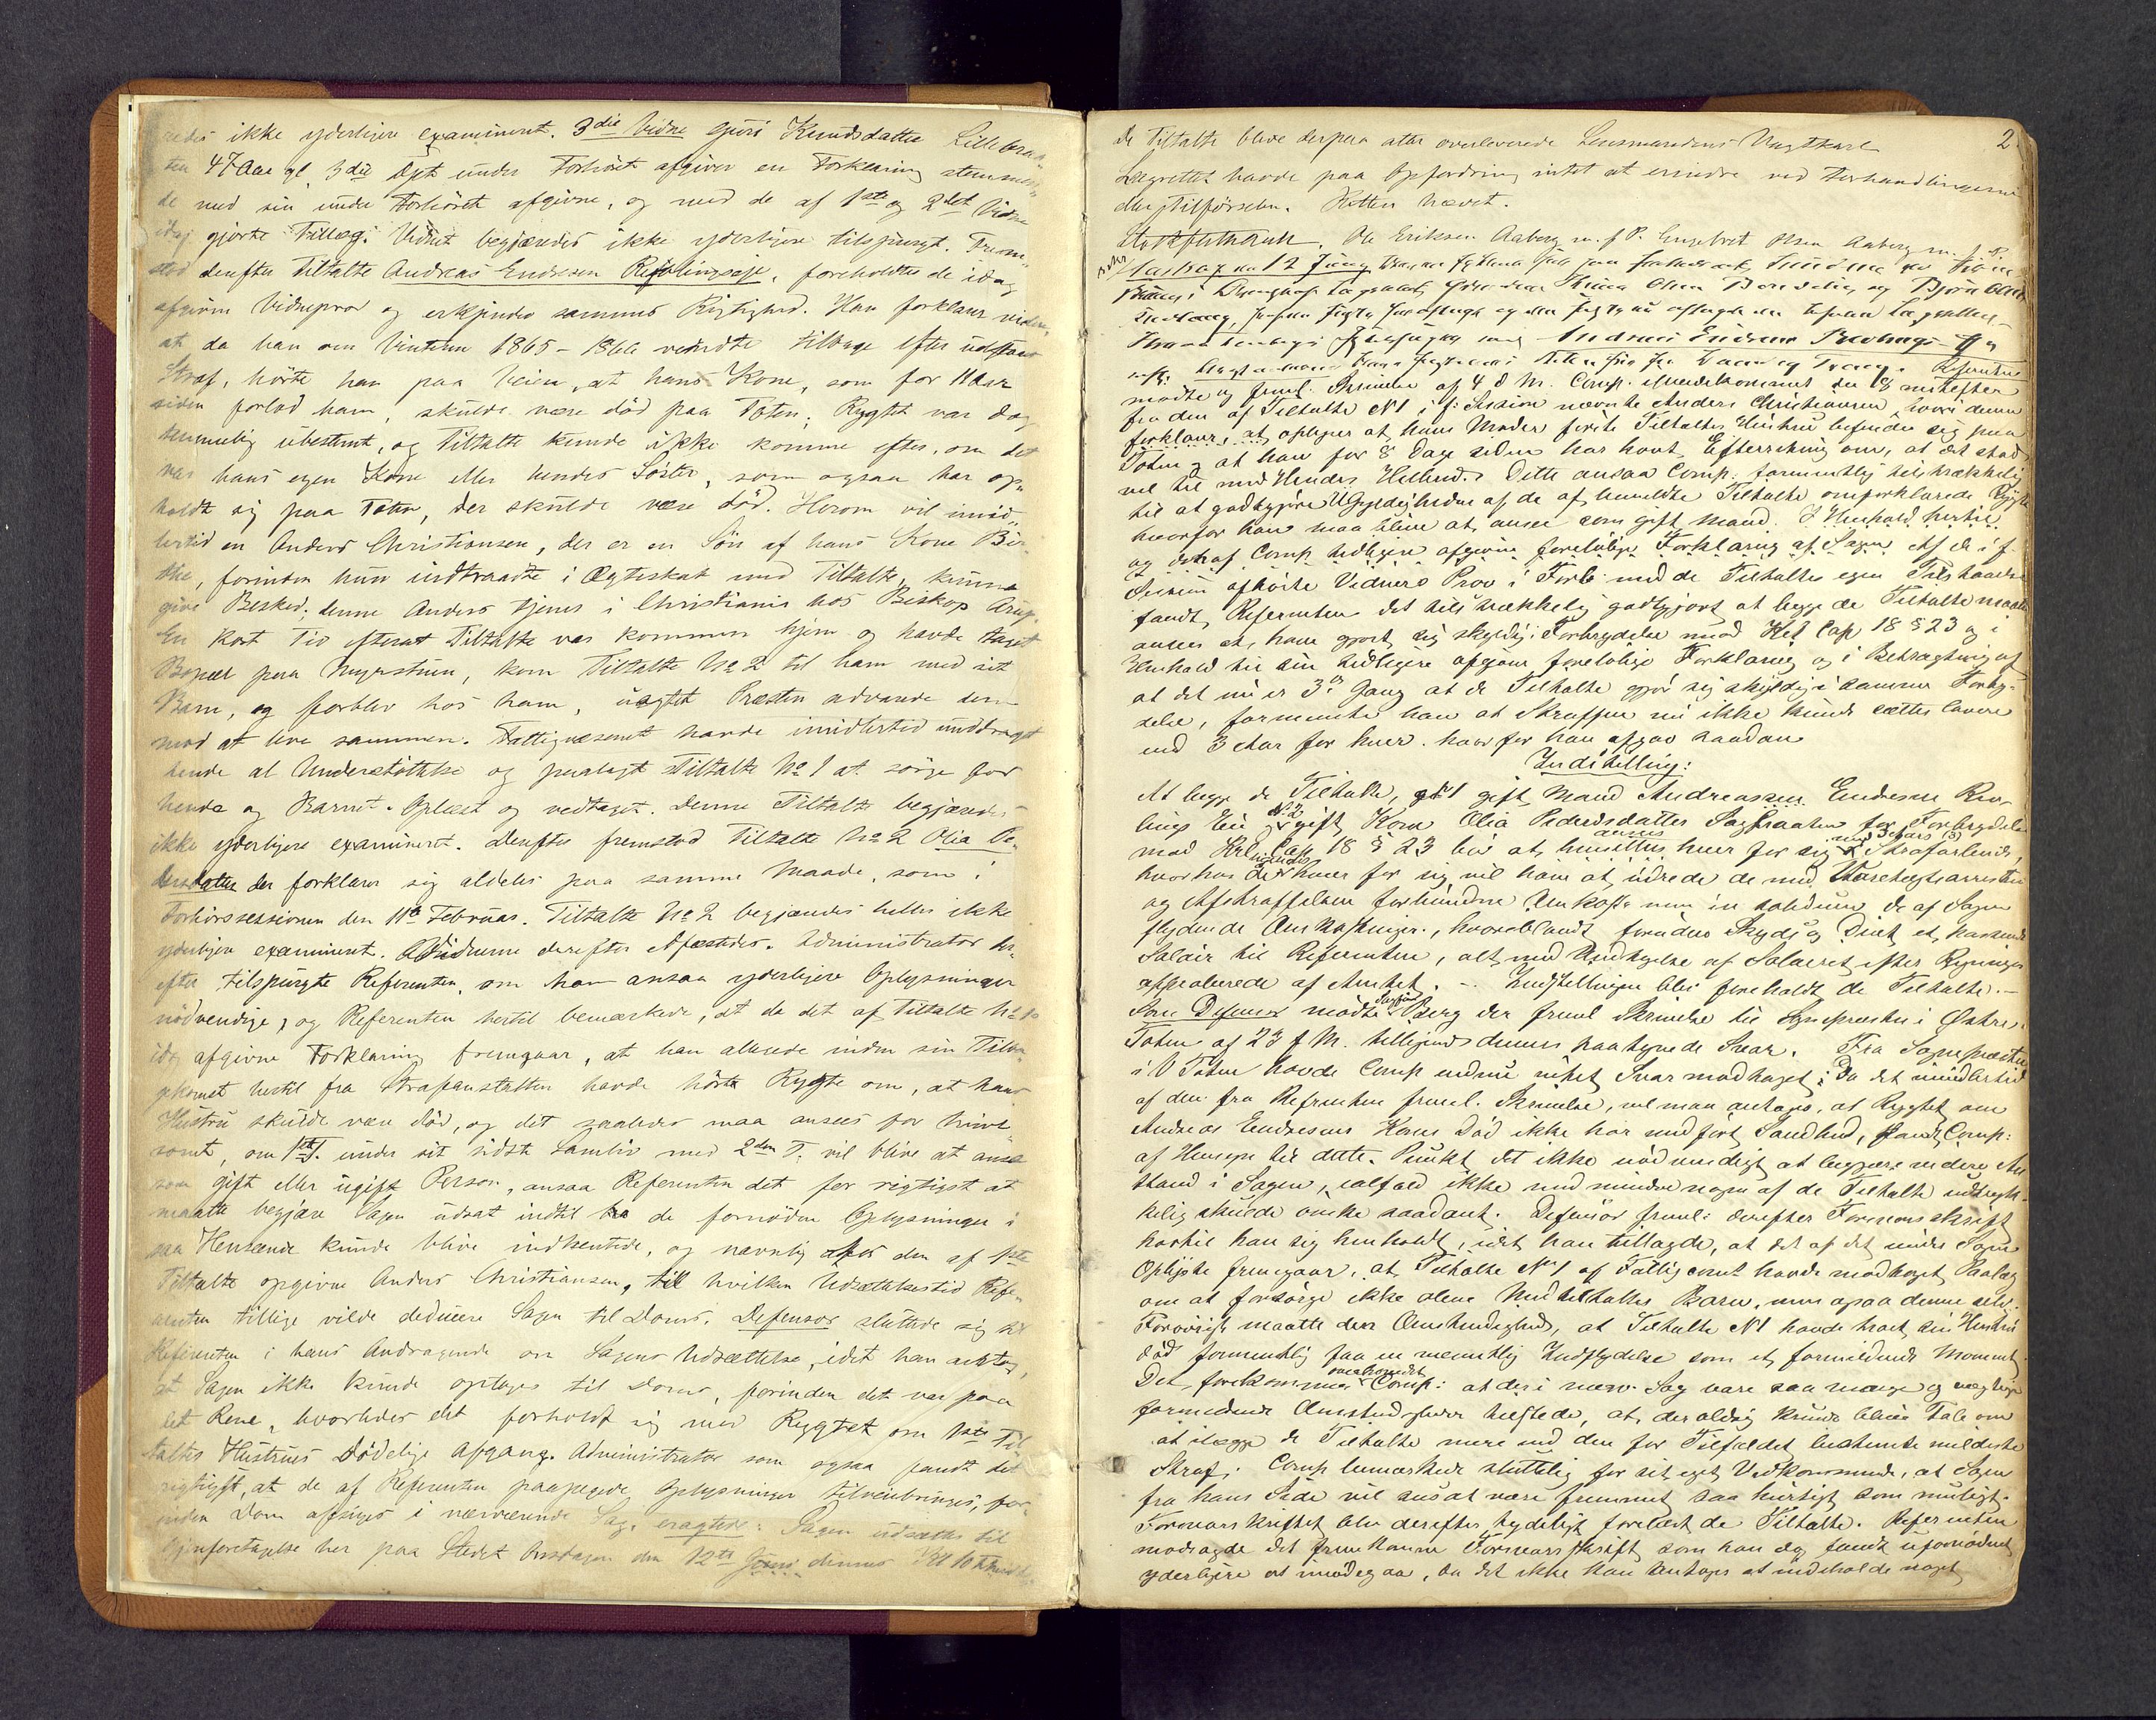 redes ikke yderligere examineret. 3die Vidne Guri Knudsdatter Lillebraa-
ten 47 Aar gl. 3die Dgt under Forhöret afgiver en Forklaring stemmen-
de med sin under Forhöret afgivne, og med de af 1ste og 2det Vidne
idag gjorte Tillæg. Vidnet begjæredes ikke yderligere tilspurgt. Frem-
stod derefter Tiltalte Andreas Endresen Revlingseje, foreholdtes de idag
afgivne Vidneprov og erkjender sammes Rigtighed. Han forklarer videre
at da han om Vinteren 1865-1866 vendte tilbage efter udstaaet
Straf, hörte han paa Veien, at hans Kone, som for 11 Aar
siden forlod ham, skulde være död paa Toten; Rygtet var dog
temmelig ubestemt, og Tiltalte kunde ikke komme efter, om det
var hans egen Kone eller hendes Söster, som ogsaa har op-
holdt sig paa Toten, der skulde være död. Herom vil imid-
lertid en Anders Christiansen, der er en Sön af hans Kone Bir-
the, forinden hun indtraadte i Ægteskab med Tiltalte, kunne
give Besked; denne Anders tjener i Christiania hos Biskop Arup.
En kort Tid efterat Tiltalte var kommen hjem og havde taget
Bopæl paa Myrstuen, kom Tiltalte No 2 til ham med sit
Barn, og forblev hos ham, uagtet Præsten advarede dem
mod at leve sammen. Fattigvæsenet havde imidlertid unddraget
hende al Understöttelse og paalagt Tiltalte No 1 at sörge for
hende og Barnet. Oplæst og vedtaget. Denne Tiltalte begjæredes
ikke yderligere examineret. Derefter fremstod Tiltalte No 2 Olia Pe-
dersdatter der forklarer sig aldeles paa samme Maade, som i
Forhörssessionen den 11te Februar. Tiltalte No 2 begjæredes heller ikke
yderligere examineret. Vidnerne derefter afsked. Administrator her-
efter tilspurgte Referenten, om han ansaa yderligere Oplysninger
nödvendige, og Referenten hertil bemærkede, at da det af Tiltalte No 1s
idag afgivne Forklaring fremgaar, at han allerede inden sin Tilba-
gekomst hertil fra Strafanstalten havde hört Rygte om, at hans
Hustru skulde være död, og det saaledes maa ansees for tvivl-
somt, om 1ste T. under sit sidste Samliv med 2den T. vil blive at ansee
som gift eller ugift Person, ansaa Referenten det for rigtigst at
maatte begjære Sagen udsat indtil de fornödne Oplysninger i
saa Henseende kunde blive indhentede, og navnlig hos den af 1ste
Tiltalte opgivne Anders Christiansen, till hvilken Udsættelsestid Refe-
renten tillige vilde deducere Sagen til Doms. Defensor sluttede sig til
Referenten i hans Andragende om Sagens Udsættelse, idet han antog,
at Sagen ikke kunde optages til Doms, forinden det var paa
det Rene, hvorledes det forholdt sig med Rygtet om 1ste Til-
taltes Hustrues Dödelige Afgang. Administrator som ogsaa fandt det
rigtigst, at de af Referenten paapegede Oplysninger tilveiebringes, for-
inden Dom afsiges i nærværende Sag, eragtede: Sagen udsættes til
Gjenforetagelse her paa Stedet Onsdagen den 12te Juni dennes Kl 10 Formidd.
2
De Tiltalte bleve derpaa atter overleverede Lensmandens Vagtkarl
Lagrettet havde paa Opfordring intet at erindre ved Forhandlingerne
eller Tilförselen. Retten hævet.
Ole Eriksen Aaberg m. f. P. Engebret Olsen Aaberg m. f. P.
Andreas Endresen Revlings Eje
Referenten
mödte og freml. Skrivelse af 4 d M. Comp. meddelt
fra den af Tiltalte No 1 i f: Session nævnte Anders Christiansen, hvori denne
forklarer, at oplyser at hans Moder förste Tiltaltes Hustru befinder sig paa
Toten og at han for 8 Dage siden har havt Efterretning om, at det stod
vel til med Hendes Helbred. Dette ansaa Comp. formentlig tilstrækkelig
til at godtgjöre Ugyldigheden af de af bemeldte Tiltalte omforklarede Rygte
hvorfor han maa blive at ansee som gift Mand. I Henhold hertil
og det af Comp. tidligere afgivne foreløbige Forklaring af Sagen Af de i f.
Session afhörte Vidners Prov i Forb. med de Tiltaltes egen Tilstaaelse
fandt Referenten det tilstrækkelig godtgjort at begge de Tiltalte maatte
ansees at have gjort sig skyldig i Forbrydelse mod Krl Cap 18 § 23 og i
Henhold til sin tidligere afgivne foreløbige Forklaring og i Betragtning af
at det nu er 3die Gang at de Tiltalte gjör sig skyldig i samme Forbry-
delse, formente han at Straffen nu ikke kunde sættes lavere
end 3 Aar for hver. hvorfor han afgav saadan
Indstilling:
At begge de Tiltalte, No 1 gift Mand Andreas Endresen Rev-
lings Eie og No 2 gift Kone Olia Pedersdatter for Forbrydelse
mod Krl. Cap 18 § 23 bör at ansees hver for sig med 3 Aars (3) Strafarbeide,
hvorhos de hver for sig vil have at udrede de med Varetægtsarresten
og Afstraffelsen forbundne Omkostn. men in solidum de af Sagen
flydende Omkostninger, hvoriblandt foruden Skyds og Diæt et passende
Salair til Referenten, alt med Undtagelse af Salairet efter Regninger
approberede af Amtet. Indstillingen blev foreholdt de Tiltalte.
Som Defensor mödte Berg der freml Skrivelse til Sognepræsten i Östre
Toten af 23 f M. tilligemed dennes paategnede Svar. Fra Sognepræsten
i V Toten havde Comp endnu intet Svar modtaget; Da det imidlertid
af den fra Referenten freml. Skrivelse, vel maa antages, at Rygtet om
Andreas Endresens Kones Död ikke har medfört Sandhed, fandt Comp:
af Hensyn til dette Punkt det ikke nödvendigt at begjære videre An-
stand i Sagen, ialfald ikke med mindre nogen af de Tiltalte udtrykke-
lig skulde önske saadant. Defensor freml: derefter Forsvarsskrift
hvortil han sig henholdt, idet han tillagde, at det af det under Sagen
Oplyste fremgaar, at Tiltalte No 1 af Fattigcom. havde modtaget Paalæg
om at forsörge ikke alene Medtiltaltes Barn, men ogsaa denne selv.
Forövrigt maatte den Omstændighed, at Tiltalte No 1 havde troet sin Hustru
död formentlig faa en væsentlig Indflydelse som et formildende Moment.
Det forekommer Comp: at der i nærv. Sag vare saa mange og vægtige
formildende Omstændigheder tilstede, at der aldrig kunde blive Tale om
at ilægge de Tiltalte mere end den for Tilfældet bestemte mildeste
Straf. Comp bemærkede sluttelig for sit eget Vedkommende, at Sagen
fra hans Side vil være fremmet saa hurtigt som muligt.
Forsvarsskriftet blev derefter tydeligt forelæst de Tiltalte. Referenten
modsagde det fremkomne Forsvarsskrift som han dog fandt ufornödent
yderligere at imödegaa, da det ikke kan antages at indeholde noget